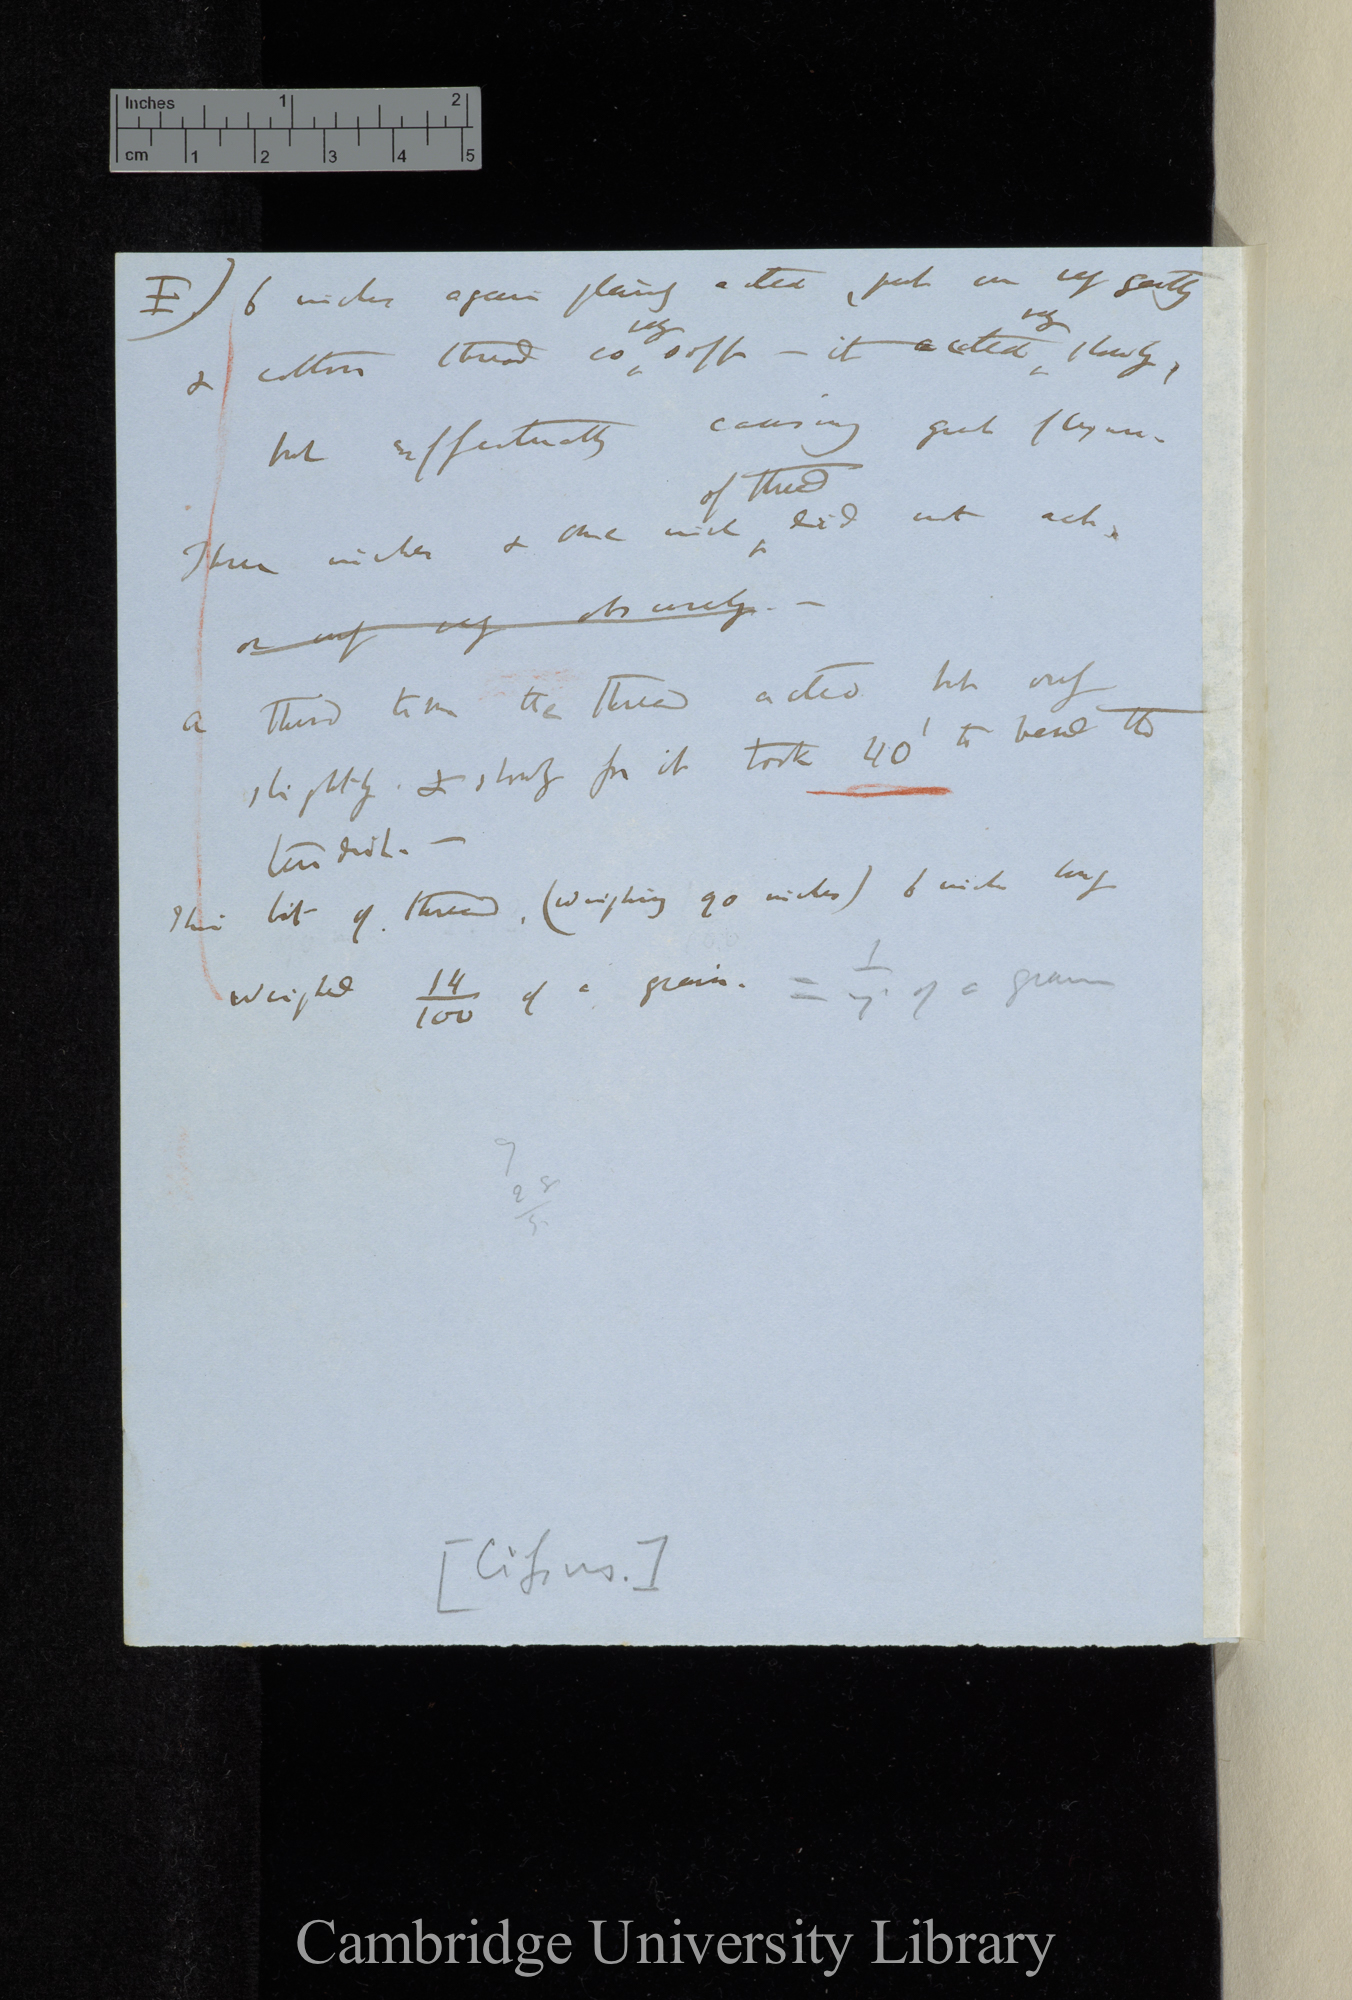 Inches 1 2
cm 1 2 3 4 5
6 inches again plainly acted, put on very gently
very very
& cotton thread is soft — it acted slowly,
but effectually causing great flexure.
of thread
Three inches & one inch did not act.
or very obscurely. —
a third time the thread acted but only
slightly. & slowly for it took 40' to bend the
tendril. —
This bit of thread, (weighing 90 inches) 6 inch long
weighed 14/100 of a grain. = 1/7 of a grain
Cambridge University Library